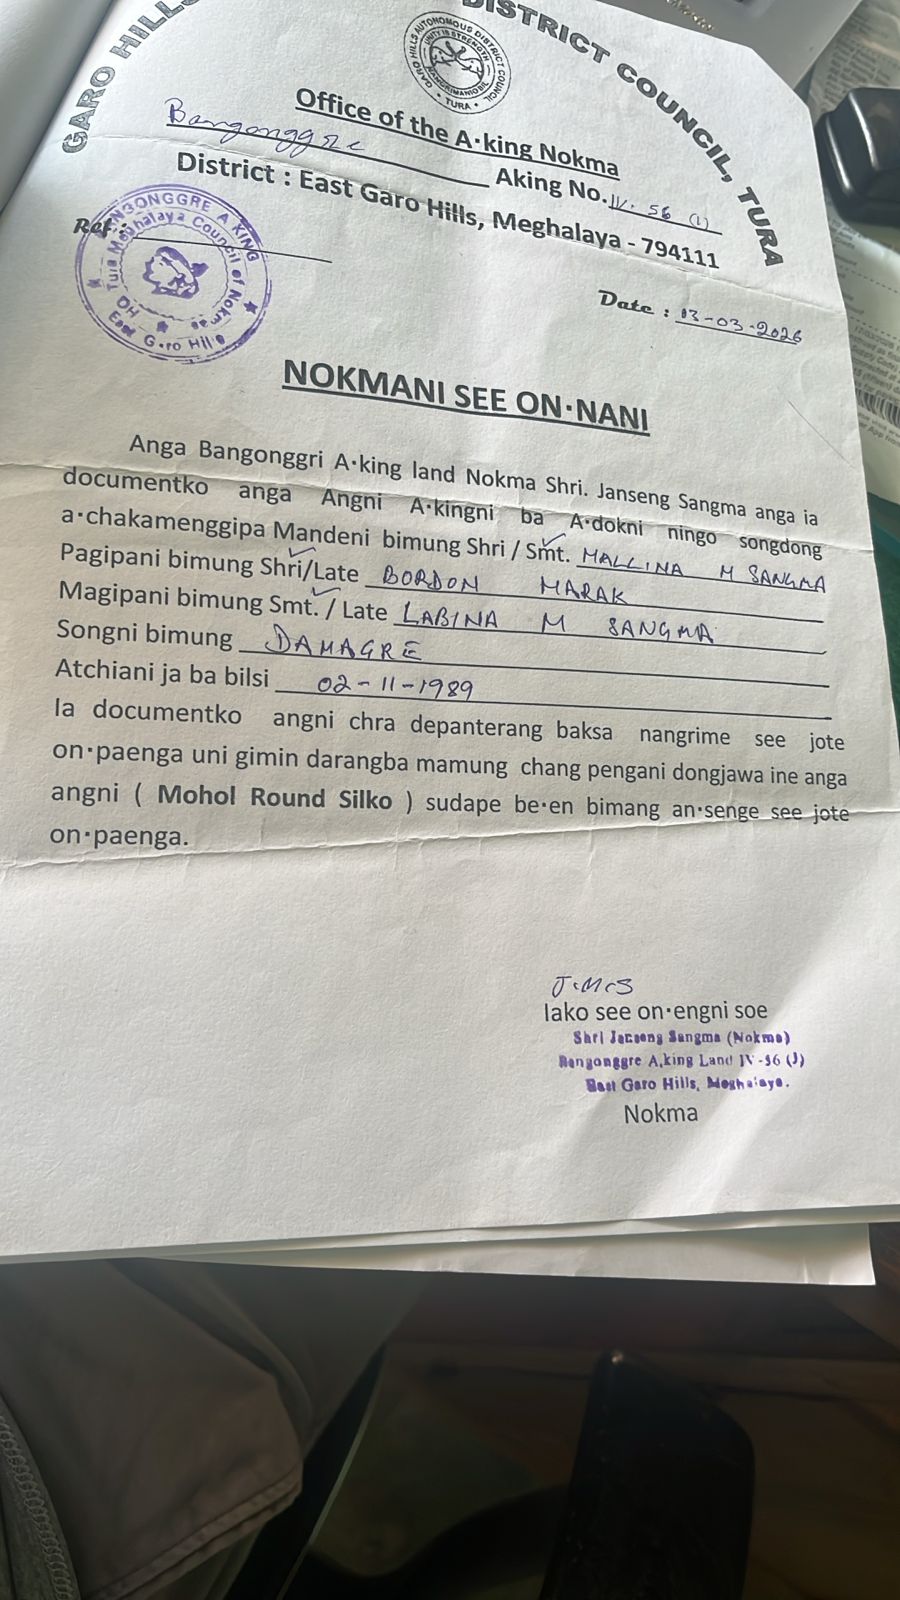 GARO HILLS
DISTRICT COUNCIL, TURA
GARO HILLS AUTONOMOUS DISTRICT COUNCIL
UNITY IS STRENGTH
TURA
Office of the A·king Nokma
Bangonggre Aking No. IV. 56 (1)
District : East Garo Hills, Meghalaya - 794111
Ref. :
BANGONGGRE A KING
Tura Meghalaya Council of Nokmas
East Garo Hills
Date : 03-03-2026
NOKMANI SEE ON·NANI
Anga Bangonggri A·king land Nokma Shri. Janseng Sangma anga ia
documentko anga Angni A·kingni ba A·dokni ningo songdong
a·chakamenggipa Mandeni bimung Shri / Smt. MALLINA M SANGMA
Pagipani bimung Shri/Late BORDON MARAK
Magipani bimung Smt. / Late LABINA M SANGMA
Songni bimung DAMAGRE
Atchiani ja ba bilsi 02-11-1989
Ia documentko angni chra depanterang baksa nangrime see jote
on·paenga uni gimin darangba mamung chang pengani dongjawa ine anga
angni ( Mohol Round Silko ) sudape be·en bimang an·senge see jote
on·paenga.
J.M.S
Iako see on·engni soe
Shri Janseng Sangma (Nokma)
Bangonggre A,king Land IV-56 (J)
East Garo Hills, Meghalaya.
Nokma